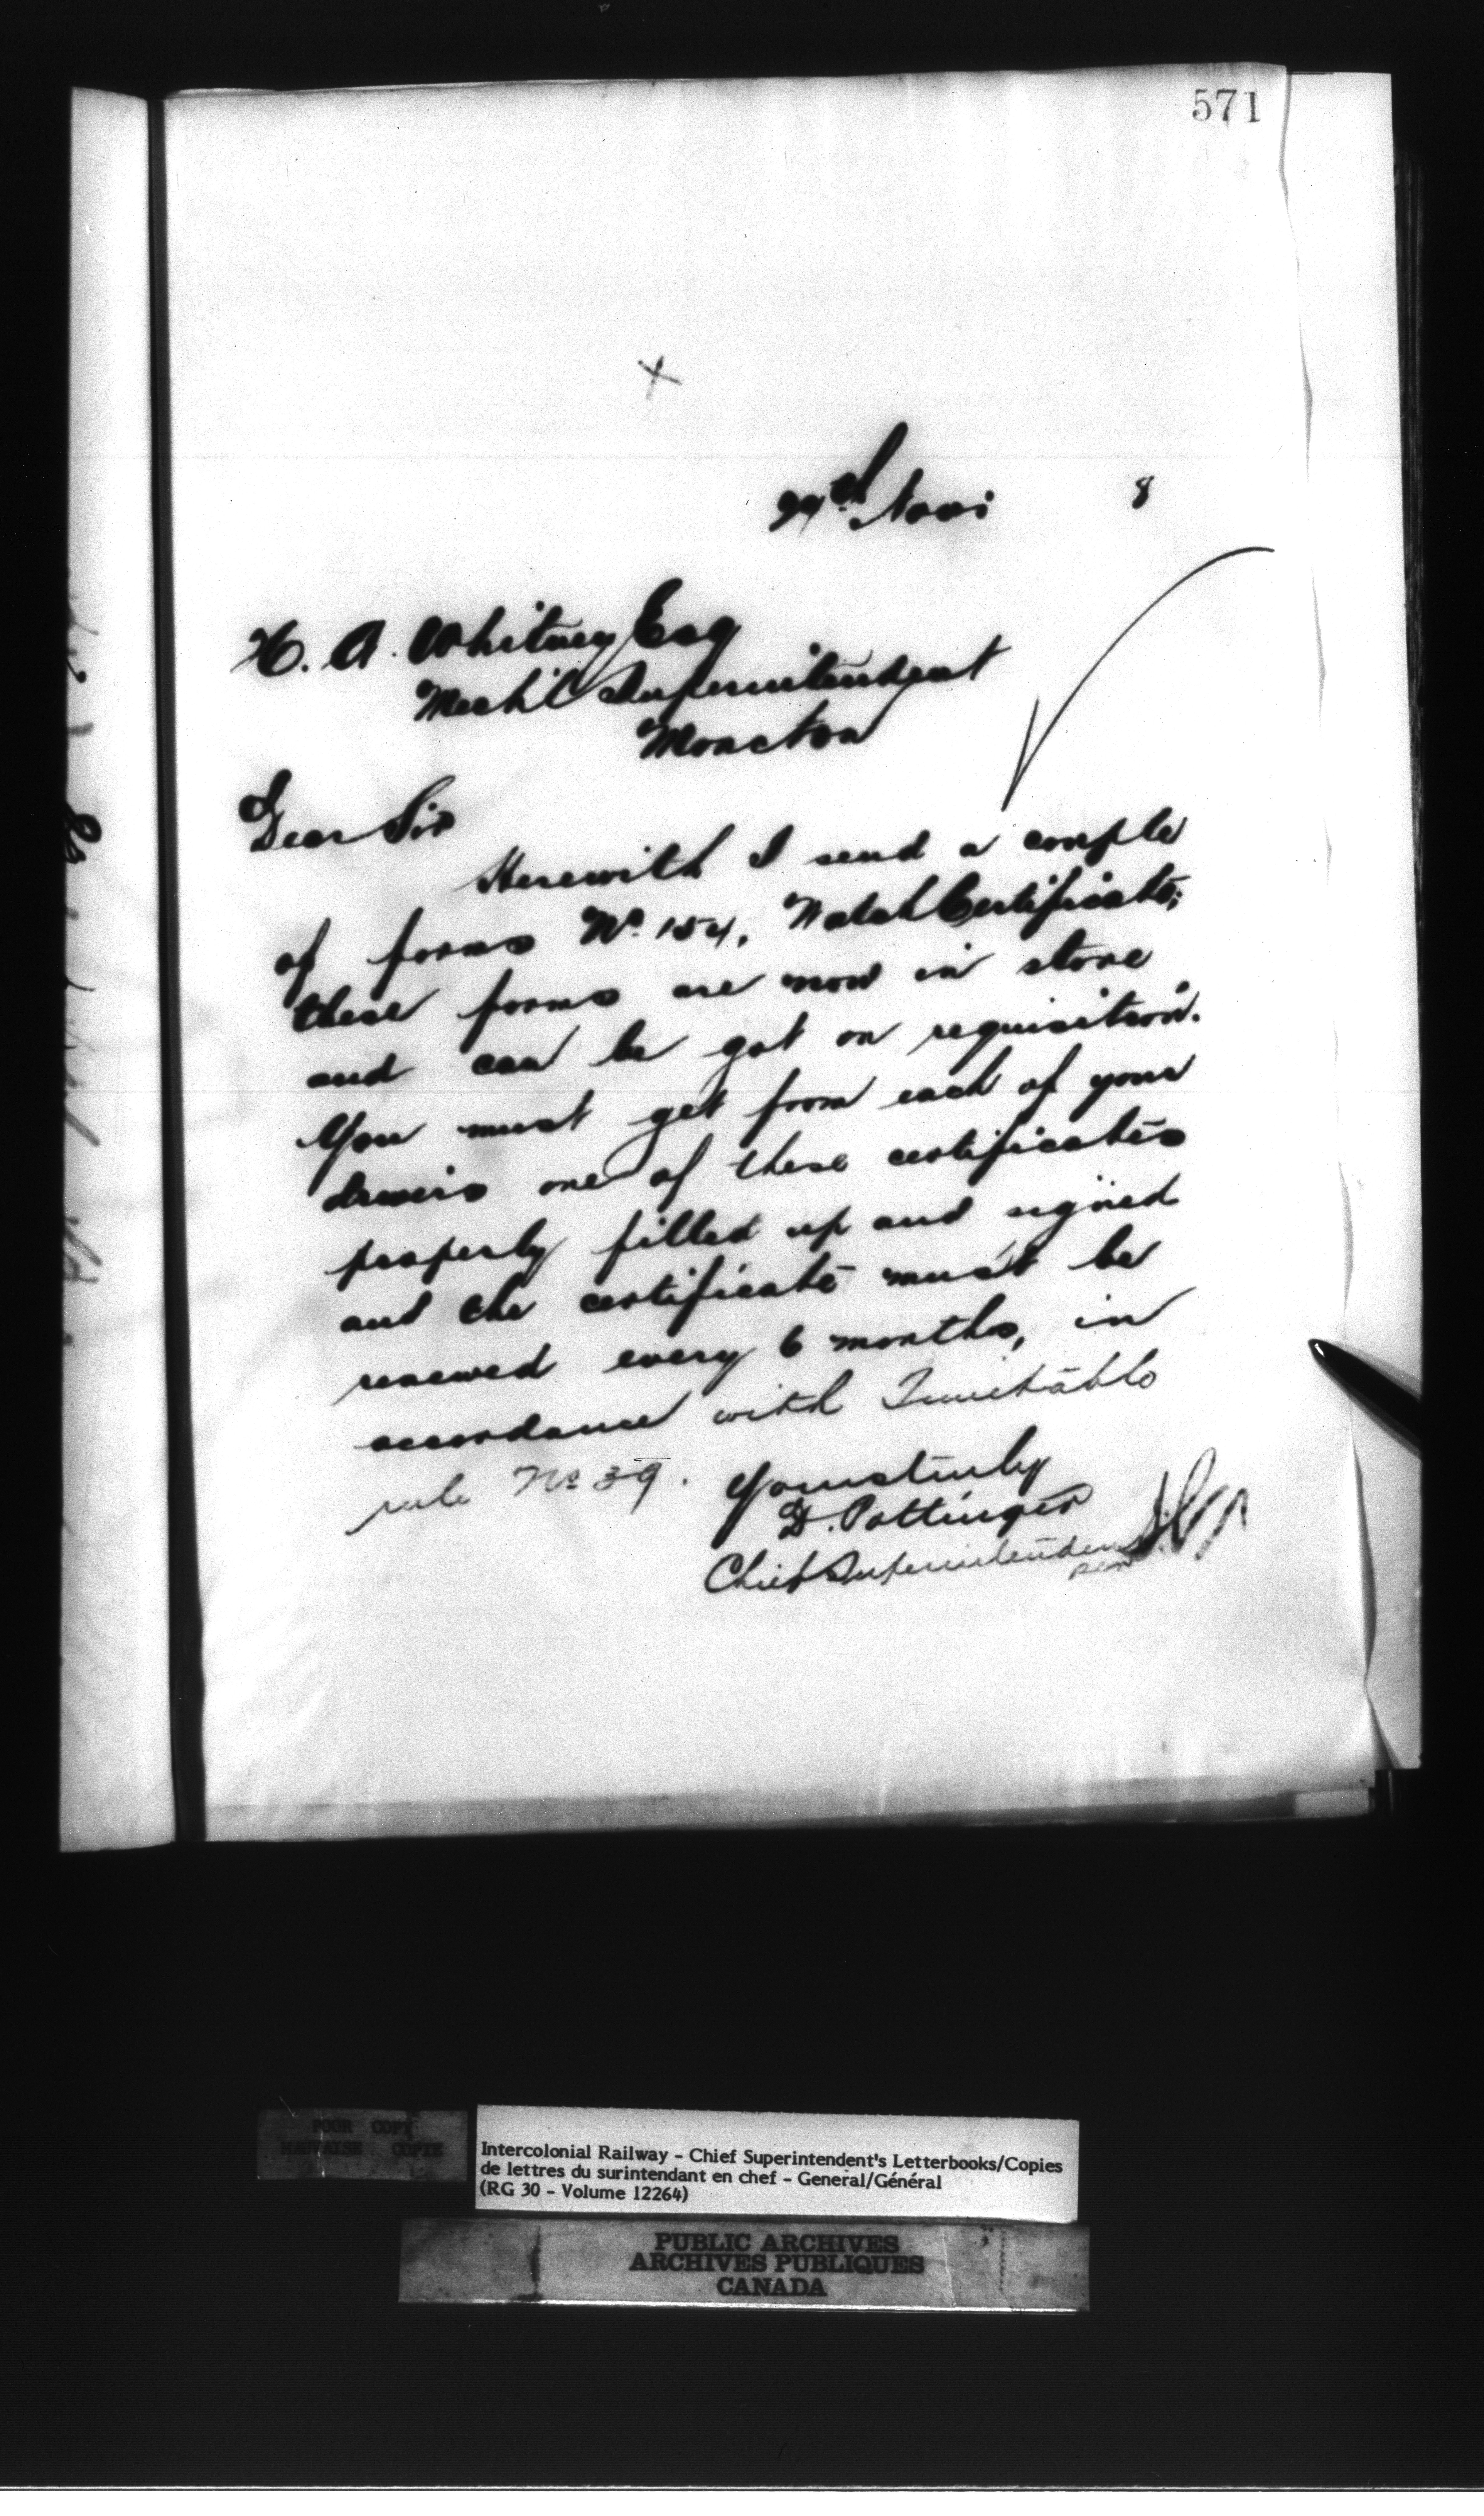 571
x
29th Nov. 8
H. A. Whitney Esq
Mech'l Superintendent
Moncton
Dear Sir
Herewith I send a couple
of forms No. 154, Watch Certificate;
these forms are now in store
and can be got on requisition.
You must get from each of your
drivers one of these certificates
properly filled up and signed
and the certificate must be
renewed every 6 months, in
accordance with Timetable
rule No 39.
Yours truly
D. Pottinger
Chief Superintendent
per
POOR COPY
MAUVAISE COPIE
Intercolonial Railway - Chief Superintendent's Letterbooks/Copies
de lettres du surintendant en chef - General/Général
(RG 30 - Volume 12264)
PUBLIC ARCHIVES
ARCHIVES PUBLIQUES
CANADA